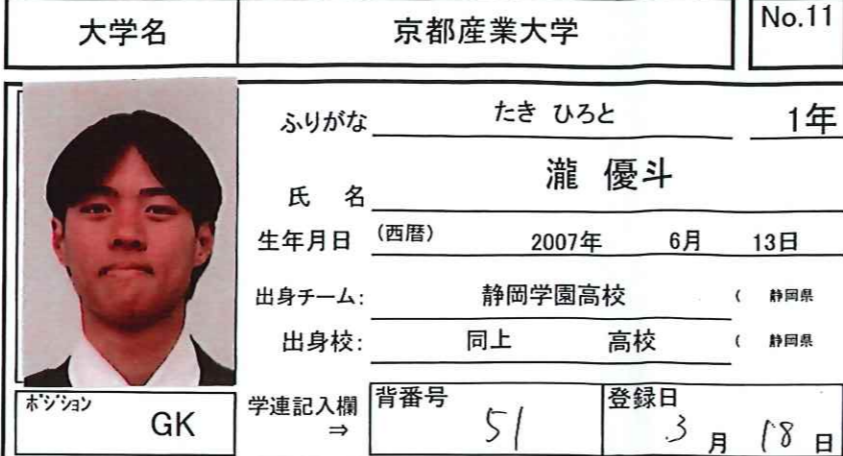 大学名 京都産業大学 No.11
ふりがな たき ひろと 1年
氏 名 瀧 優斗
生年月日 (西暦) 2007年 6月 13日
出身チーム: 静岡学園高校 ( 静岡県
出身校: 同上 高校 ( 静岡県
ポジション GK 学連記入欄 ⇒ 背番号 51 登録日 3 月 18 日